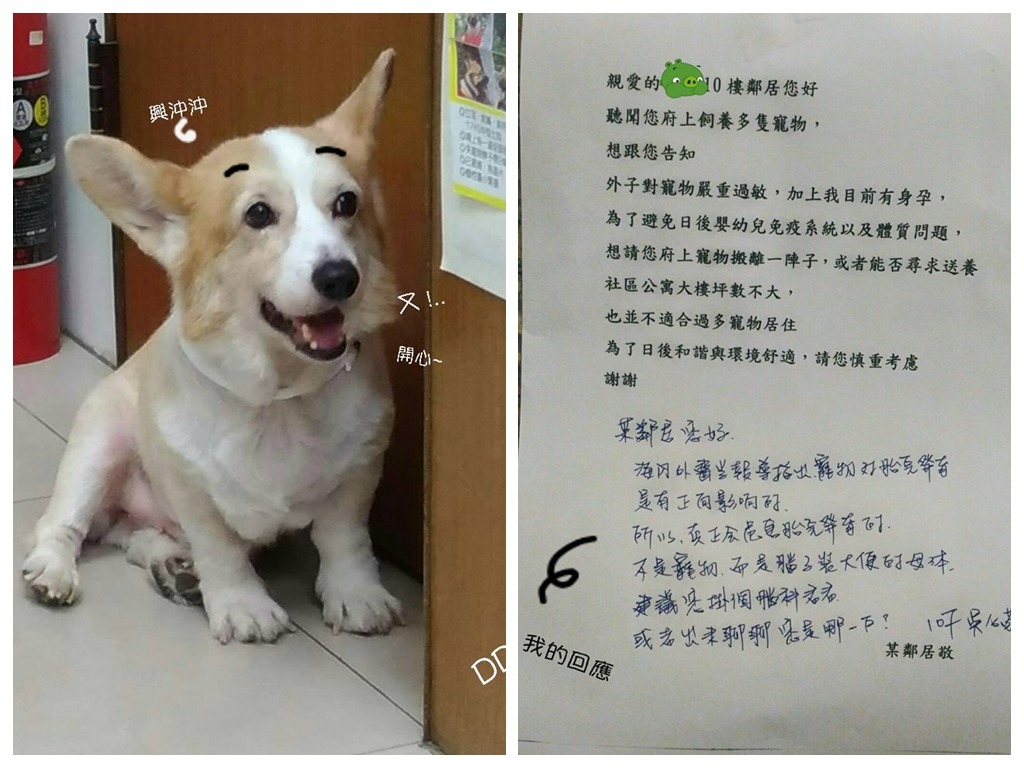 興沖沖
又!..
開心~
DD
A
B
親愛的 10 樓鄰居您好
聽聞您府上飼養多隻寵物，
想跟您告知
外子對寵物嚴重過敏，加上我目前有身孕，
為了避免日後嬰幼兒免疫系統以及體質問題，
想請您府上寵物搬離一陣子，或者能否尋求送養
社區公寓大樓坪數不大，
也並不適合過多寵物居住
為了日後和諧與環境舒適，請您慎重考慮
謝謝
某鄰居您好.
海內外醫學報導指出寵物對胎兒發育
是有正向影响的.
所以,真正会危害胎兒發育的.
不是寵物.而是腦子裝大便的母体.
建議您掛個腦科看看.
或者出來聊聊您是哪一下?
10F
某鄰居敬
我的回應